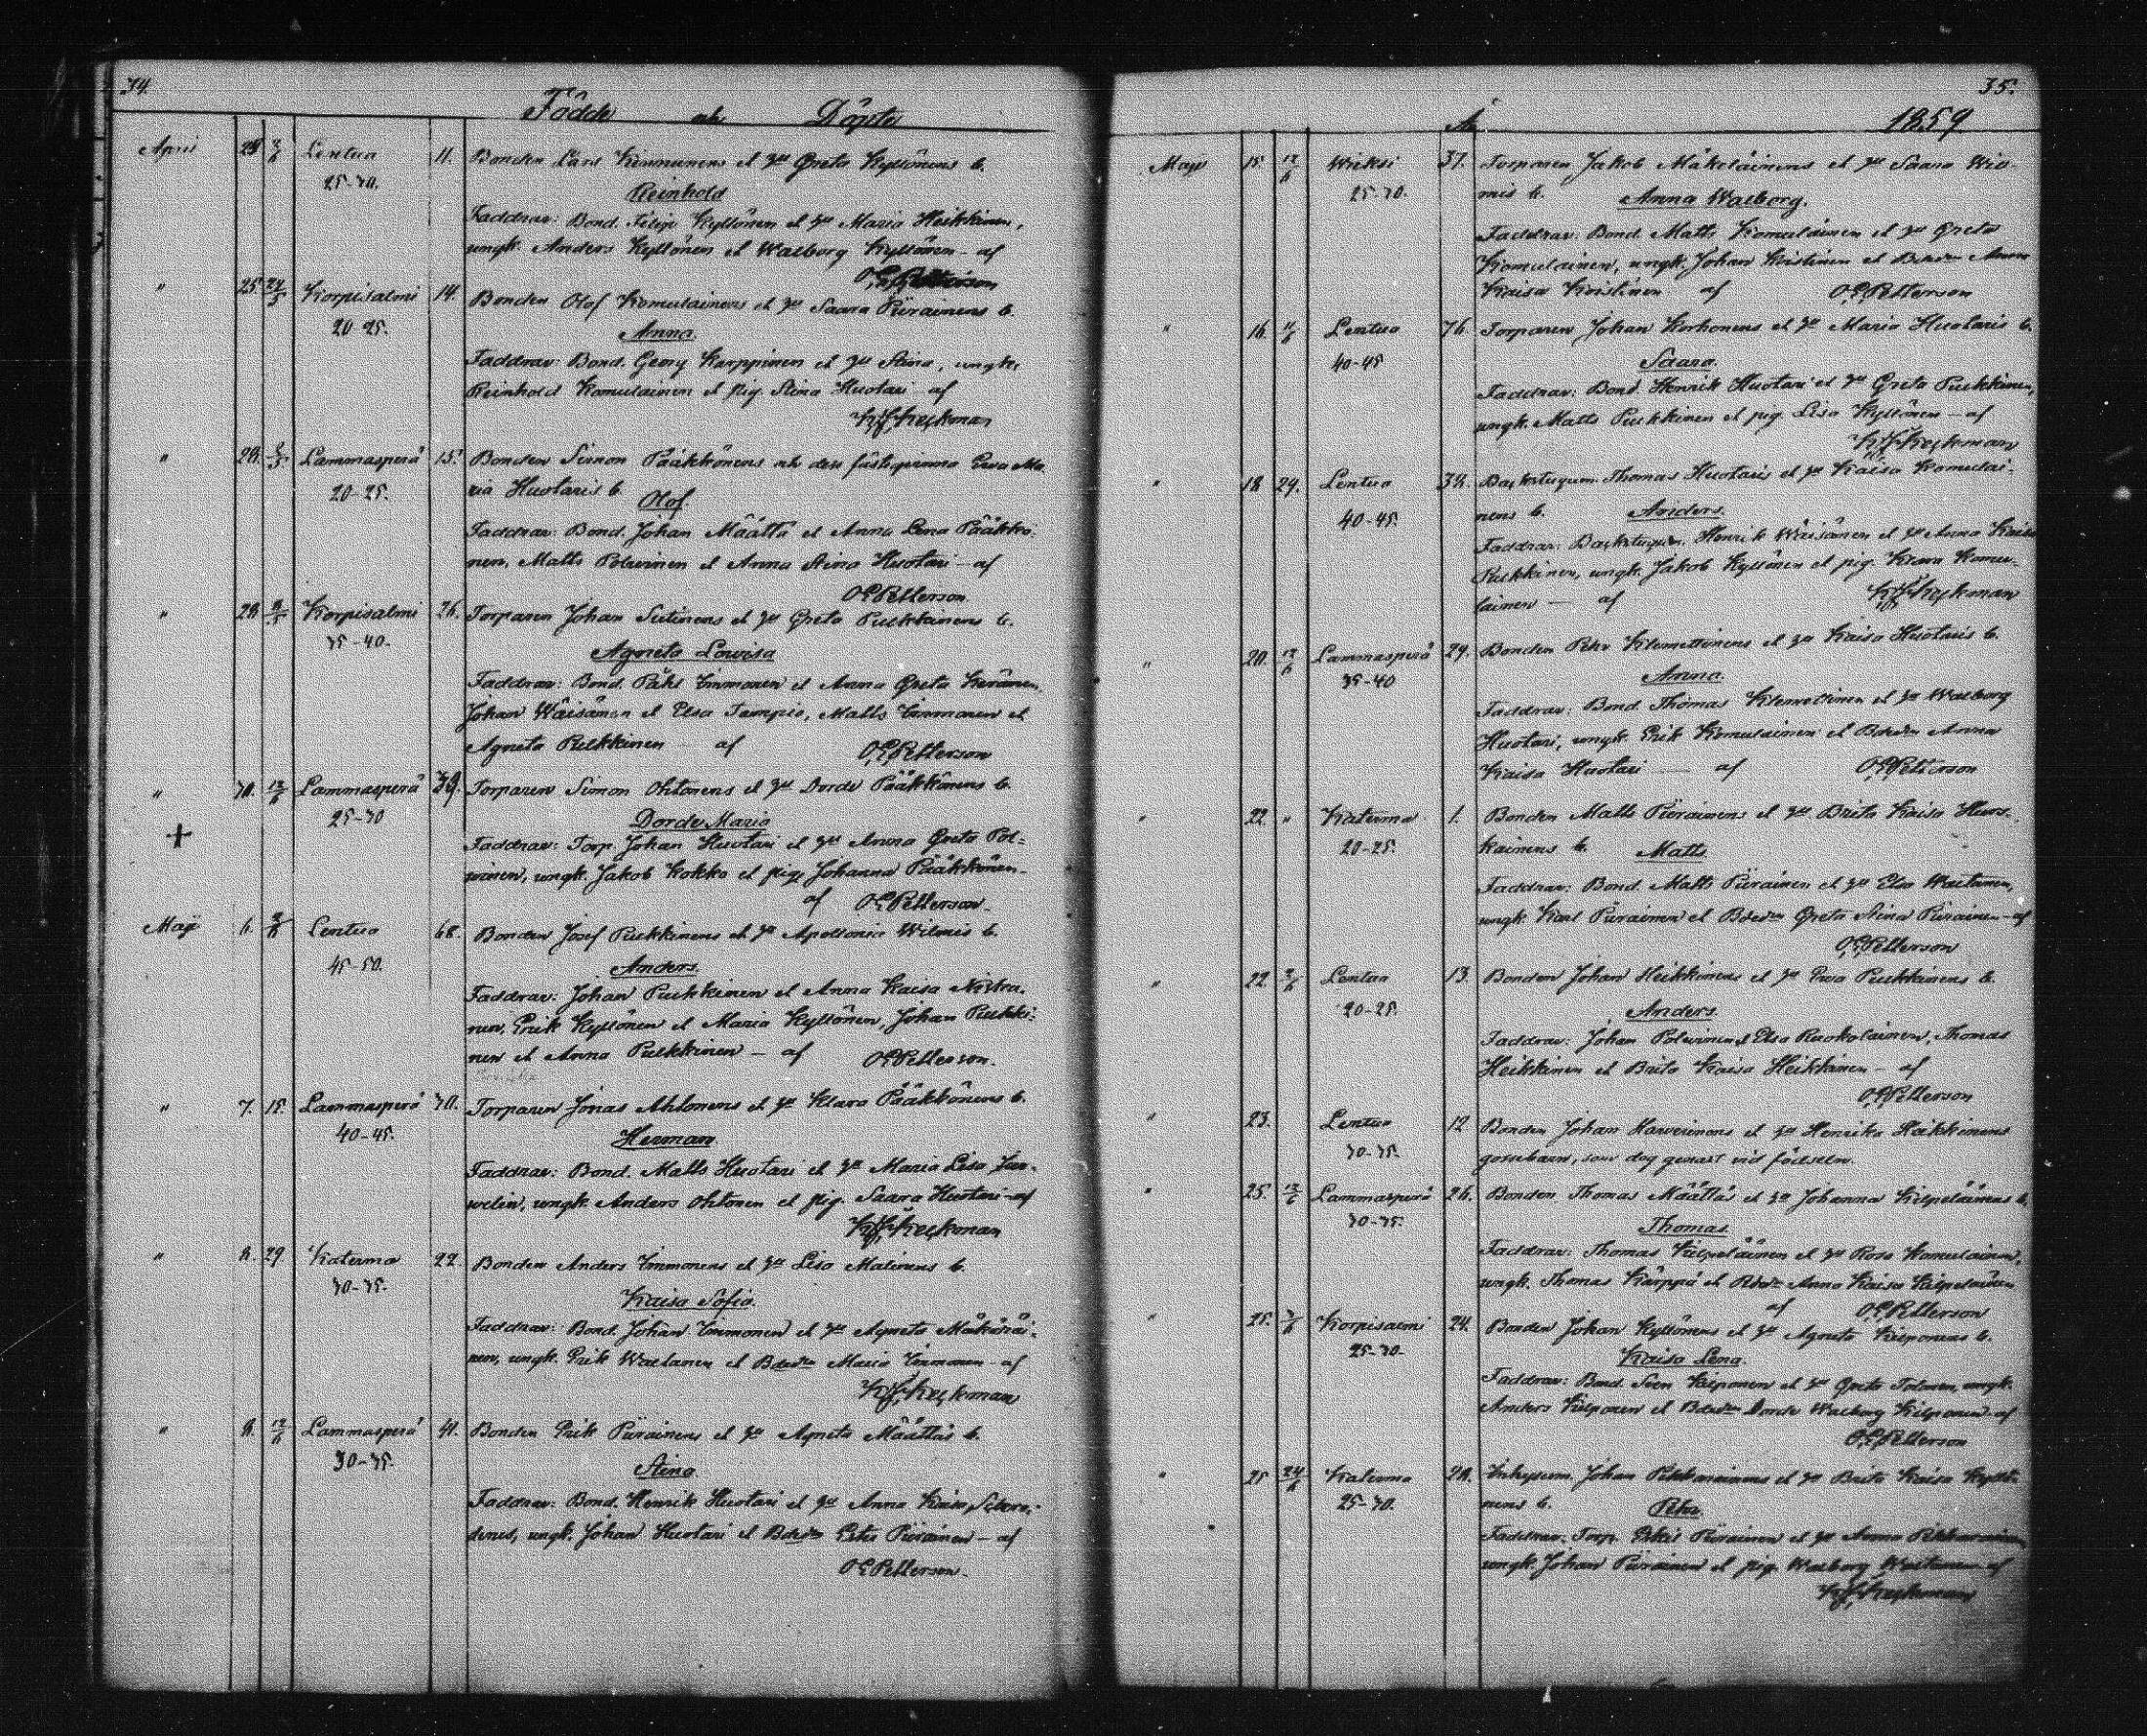 34.
Född och Döpte
April 23 2/6 Lentua 11. Bonden Lars Kinnunens et Hu Greta Kyllönens b.
25-30. Reinhold
Faddrar: Bond. Filip Kyllönen et Hu Maria Heikkinen,
ungk. Anders Kyllönen et Walborg Kyllönen - af
O.E.Petterson
" 25. 24/5 Korpisalmi 14. Bonden Olof Komulainens et Hu Saara Piirainens b.
20-25. Anna.
Faddrar: Bond. Georg Karppinen et Hu Stina, ungk.
Reinhold Komulainen et pig. Stina Huotari - af
Keckman
" 28. Lammasperä 15. Bonden Simon Pääkkönens och dess fästeqvinna Ewa Ma-
20-25. ria Huotaris b. Olof.
Faddrar: Bond. Johan Määttä et Anna Lena Pääkkö-
nen, Matts Polwinen et Anna Stina Huotari - af
O.E.Petterson
" 28. Korpisalmi 26. Torparen Johan Sutinens et Hu Greta Pulkkinens b.
35-40. Agneta Lowisa
Faddrar: Bond. Påhl Timmonen et Anna Greta Keränen,
Johan Wäisänen et Elsa Tampio, Matts Timmonen et
Agneta Pulkkinen - af O.E.Petterson
" 30. 12/6 Lammasperä 39. Torparen Simon Ohtonens et Hu Dorde Pääkkönens b.
25-30 Dorde Maria
+ Faddrar: Torp. Johan Huotari et Hu Anna Greta Pol-
winen, ungk. Jakob Kokko et pig. Johanna Pääkkönen -
af O.E.Petterson.
Maji 6. Lentua 68. Bonden Josef Pulkkinens et Hu Apollonia Wilmis b.
45-50. Anders.
Faddrar: Johan Pulkkinen et Anna Kaisa
nen, Erik Kyllönen et Maria Kyllönen, Johan Pulkki-
nen et Anna Pulkkinen - af O.E.Petterson.
" 7. 15. Lammasperä 30. Torparen Jonas Ahtonens et Hu Klara Pääkkönens b.
40-45. Herman.
Faddrar: Bond. Matts Huotari et Hu Maria Lisa Juu-
welin, ungk. Anders Ohtonen et pig. Saara Huotari - af
Keckman
" 8. 29. Katerma 22. Bonden Anders Timmonens et Hu Lisa Malinens b.
30-35. Kaisa Sofia.
Faddrar: Bond. Johan Timmonen et Hu Agneta Mäkäräi-
nen, ungk. Erik Waltanen et Bdedr Maria Timmonen - af
Keckman
" 8. 12/6 Lammasperä 41. Bonden Erik Piirainens et Hu Agneta Määttäs b.
30-35. Stina.
Faddrar: Bond. Henrik Huotari et Hu Anna Kaisa
ungk. Johan Huotari et Bdedr Piirainen - af
O.E.Petterson.
35.
År 1859
Maji 15. 12/6 Wieksi 37. Torparen Jakob Mäkeläinens et Hu Saara Wil-
25-30. mis b. Anna Walborg.
Faddrar: Bond. Matts Komulainen et Hu Greta
Komulainen, ungk. Johan Koistinen et Bdedr Anna
Kaisa Koistinen af O.E.Petterson
" 16. Lentua 76. Torparen Johan Korhonens et Hu Maria Huotaris b.
40-45 Saara.
Faddrar: Bond. Henrik Huotari et Hu Greta Pulkkinen,
ungk. Matts Pulkkinen et pig. Lisa Kyllönen - af
Keckman
" 18 29. Lentua 32. Backstugum. Thomas Huotaris et Hu Kaisa Komulai-
40-45. nens b. Anders.
Faddrar: Backstugum. Henrik Wäisänen et Hu Anna Kaisa
Pulkkinen, ungk. Jakob Kyllönen et pig. Komu-
lainen - af Keckman
" 20. 12/6 Lammasperä 29. Bonden Pehr Klemettinens et Hu Kaisa Huotaris b.
35-40 Anna.
Faddrar: Bond. Thomas Klemettinen et Hu Walborg
Huotari, ungk. Erik Komulainen et Bdedr Anna
Kaisa Huotari - af O.E.Petterson
" 22. " Katerma 1. Bonden Matts Piirainens et Hu Brita Kaisa Hurs-
20-25. kainens b. Matts.
Faddrar: Bond. Matts Piirainen et Hu Elsa Waltanen,
ungk. Karl Piirainen et Bdedr Greta Stina Piirainen - af
O.E.Petterson
" 22 Lentua 13. Bonden Johan Heikkinens et Hu Ewa Pulkkinens b.
20-25. Anders.
Faddrar: Johan Polwinen et Elsa Ruokolainen, Thomas
Heikkinen et Brita Kaisa Heikkinen - af
O.E.Petterson
" 23. Lentua 12 Bonden Johan Harwinens et Hu Henrika Heikkinens
30-35. gossebarn, som dog genast vid födseln.
" 25. 12/6 Lammasperä 26. Bonden Thomas Määttäs et Hu Johanna Kilpeläinens b.
30-35. Thomas.
Faddrar: Thomas Kilpeläinen et Hu Rosa Komulainen,
ungk. Thomas Kärppä et Bdedr Anna Kaisa Kilpeläinen
af O.E.Petterson
" 25. Korpisalmi 24. Bonden Johan Kyllönens et Hu Agneta Kilponens b.
25-30. Kaisa Lena.
Faddrar: Bond. Sven Kilponen et Hu Greta Tolonen, ungk.
Anders Kilponen et Bdedr Dorde Walborg Kilponen - af
O.E.Petterson
" 25 24/6 Katerma 28. Inhysem. Johan Pikkaraimens et Hu Brita Kaisa Kyllö-
25-30. nens b. Pehr
Faddrar: Torp. Piirainen et Hu Anna Pikkarainen,
ungk. Johan Piirainen et pig. Walborg Waltanen - af
Keckman